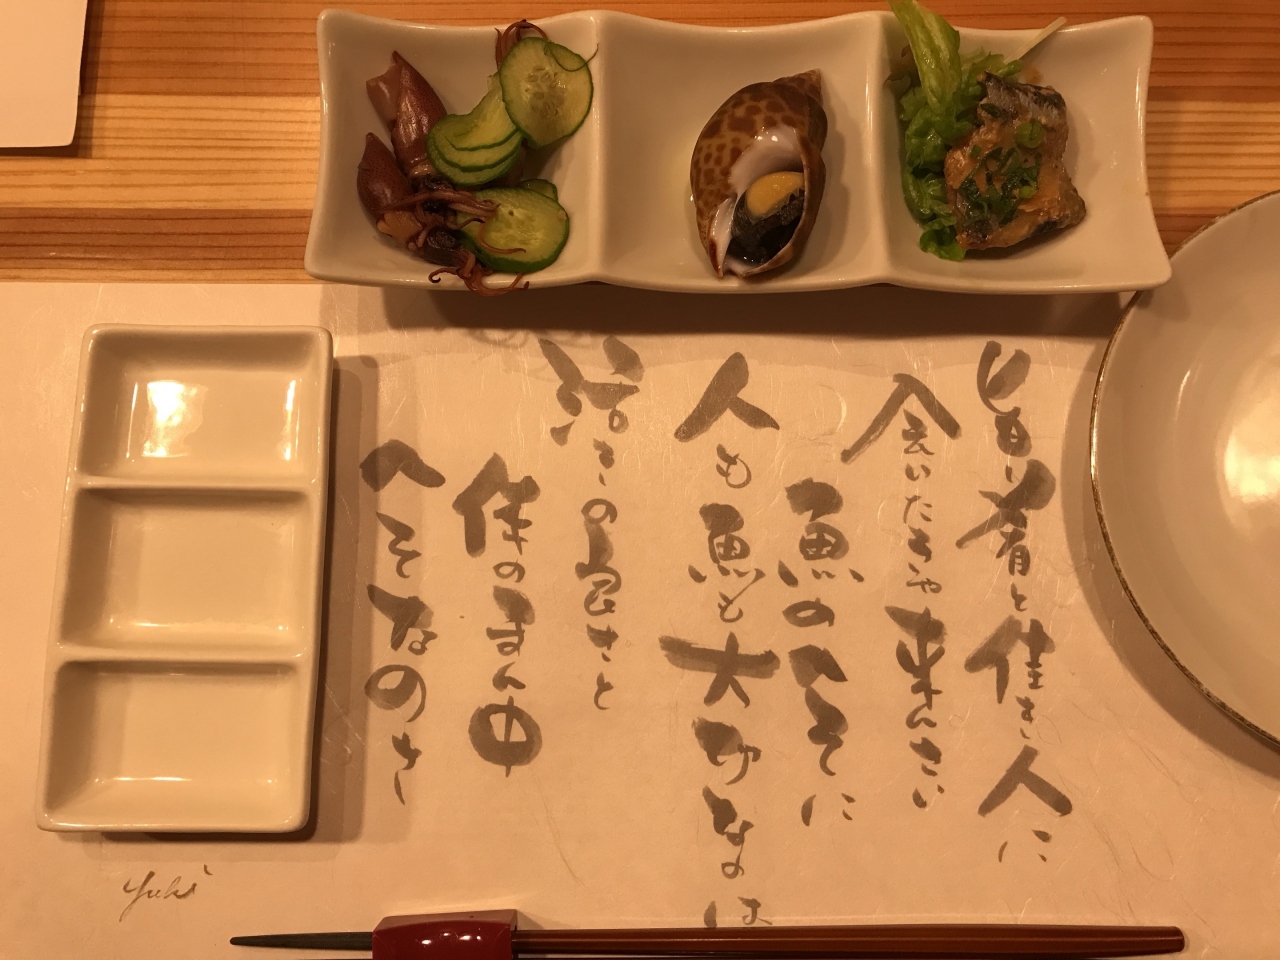 旨い肴と佳き人に
会いたきゃ来んさい
魚のへそに
人も魚も大切なのは
活きの良さと
体のまん中
へそなのさ
Yuki